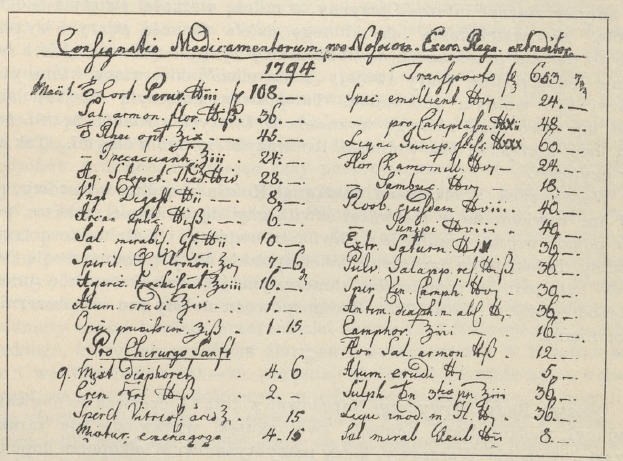 Consignatio Medicamentorum pro Nosocom. Exerc. Regn. extraditor.
1794
Maii 1. Cort. Peruv. ℔iii f 108.—
Sal. armon. flor. ℔iß. 36.—
Rhei opt ℥ix.— 45.—
— Ipecacuanh ℥iii— 24.—
Aq. Sclopet. Thed ℔iv 28.—
Ungt Digest. ℔ii — 8.—
Arcan duplic. ℔iß. 6—
Sal mirabil. Gl ℔ii 10.—
Spirit. C
Agaric. trochiscat. ℥viii 16.—
Alum crudi ℥iv.— 1.—
Opii puriss. ℥iß 1.15.
Pro Chirurgo Sanft
9. Mixt diaphoret. 4.6
Crem Trt ℔ß. 2.—
Spirit Vitriol. acid 15
Mixtur. emenagoga 4.15
Transporto f 653.
Spec emollient. ℔vj — 24.—
— pro Cataplasm. ℔xii 48.—
Ligni Junip. sciss. ℔xxx 60.—
Flor Chamomill ℔vj — 24.—
— Sambuc. ℔vj — 18.—
Roob ejusdem ℔viii. 40.—
— Junipi ℔viii. 40.—
Extr. Saturn 36.—
Pulv. Jalapp. res ℔iß 36.—
Spir Vin Camph ℔vj — 30.—
Antim. diaph. n. abl. ℔j. 36.—
Camphor. ℥iii — 16.—
Flor Sal. armon ℔ß. 12.—
Alum. crudi — 5.—
Sulph 36.—
Liqu anod. m. H. 36.—
Sal miral Geul ℔ii 8.—